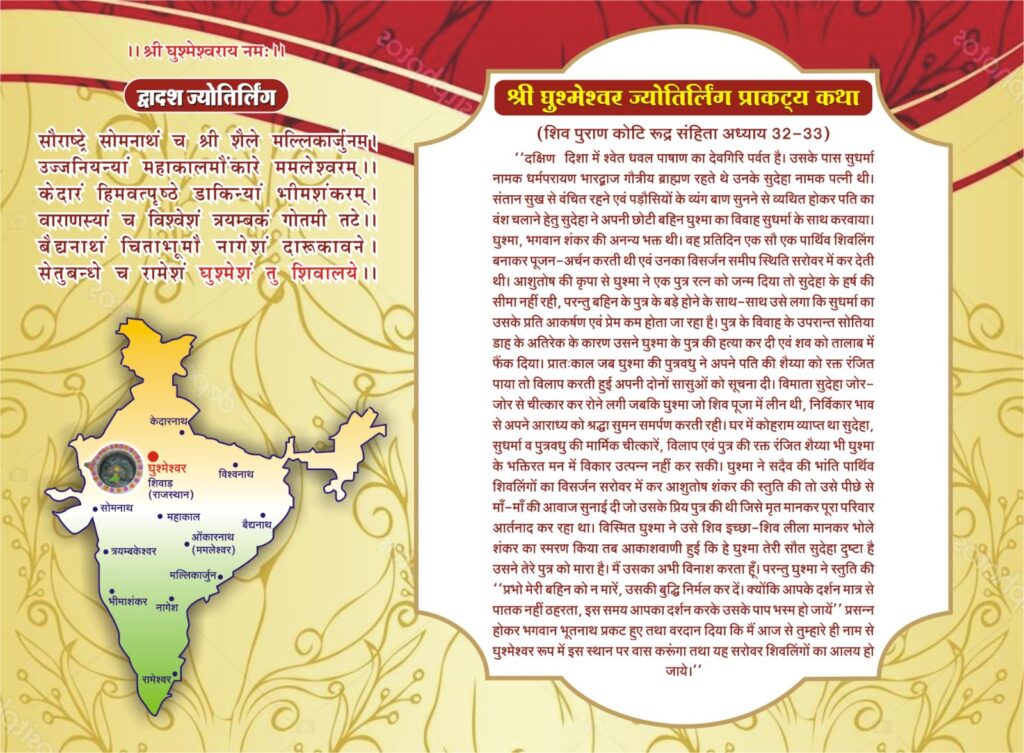 ।। श्री घुश्मेश्वराय नमः।।
द्वादश ज्योतिर्लिंग
सौराष्ट्रे सोमनाथं च श्री शैले मल्लिकार्जुनम्।
उज्जनियन्यां महाकालमोंकारे ममलेश्वरम्।।
केदारं हिमवत्पृष्ठे डाकिन्यां भीमशंकरम्।
वाराणस्यां च विश्वेशं त्रयम्बकं गोतमी तटे।।
बैद्यनाथां चिताभूमौ नागेशं दारूकावने।
सेतुबन्धे च रामेशं घुश्मेशं तु शिवालये।।
केदारनाथ
घुश्मेश्वर
शिवाड़
(राजस्थान)
विश्वनाथ
सोमनाथ
महाकाल
बैद्यनाथ
ओंकारनाथ
(ममलेश्वर)
त्रयम्बकेश्वर
मल्लिकार्जुन
भीमाशंकर
नागेश
रामेश्वर
श्री घुश्मेश्वर ज्योतिर्लिंग प्राकट्य कथा
(शिव पुराण कोटि रूद्र संहिता अध्याय 32-33)
‘‘दक्षिण दिशा में श्वेत धवल पाषाण का देवगिरि पर्वत है। उसके पास सुधर्मा
नामक धर्मपरायण भारद्वाज गौत्रीय ब्राह्मण रहते थे उनके सुदेहा नामक पत्नी थी।
संतान सुख से वंचित रहने एवं पड़ौसियों के व्यंग बाण सुनने से व्यथित होकर पति का
वंश चलाने हेतु सुदेहा ने अपनी छोटी बहिन घुश्मा का विवाह सुधर्मा के साथ करवाया।
घुश्मा, भगवान शंकर की अनन्य भक्त थी। वह प्रतिदिन एक सौ एक पार्थिव शिवलिंग
बनाकर पूजन-अर्चन करती थी एवं उनका विसर्जन समीप स्थिति सरोवर में कर देती
थी। आशुतोष की कृपा से घुश्मा ने एक पुत्र रत्न को जन्म दिया तो सुदेहा के हर्ष की
सीमा नहीं रही, परन्तु बहिन के पुत्र के बड़े होने के साथ-साथ उसे लगा कि सुधर्मा का
उसके प्रति आकर्षण एवं प्रेम कम होता जा रहा है। पुत्र के विवाह के उपरान्त सोतिया
डाह के अतिरेक के कारण उसने घुश्मा के पुत्र की हत्या कर दी एवं शव को तालाब में
फैंक दिया। प्रातःकाल जब घुश्मा की पुत्रवधु ने अपने पति की शैय्या को रक्त रंजित
पाया तो विलाप करती हुई अपनी दोनों सासुओं को सूचना दी। विमाता सुदेहा जोर-
जोर से चीत्कार कर रोने लगी जबकि घुश्मा जो शिव पूजा में लीन थी, निर्विकार भाव
से अपने आराध्य को श्रद्धा सुमन समर्पण करती रही। घर में कोहराम व्याप्त था सुदेहा,
सुधर्मा व पुत्रवधु की मार्मिक चीत्कारें, विलाप एवं पुत्र की रक्त रंजित शैय्या भी घुश्मा
के भक्तिरत मन में विकार उत्पन्न नहीं कर सकी। घुश्मा ने सदैव की भांति पार्थिव
शिवलिंगों का विसर्जन सरोवर में कर आशुतोष शंकर की स्तुति की तो उसे पीछे से
माँ-माँ की आवाज सुनाई दी जो उसके प्रिय पुत्र की थी जिसे मृत मानकर पूरा परिवार
आर्तनाद कर रहा था। विस्मित घुश्मा ने उसे शिव इच्छा-शिव लीला मानकर भोले
शंकर का स्मरण किया तब आकाशवाणी हुई कि हे घुश्मा तेरी सौत सुदेहा दुष्टा है
उसने तेरे पुत्र को मारा है। मैं उसका अभी विनाश करता हूँ। परन्तु घुश्मा ने स्तुति की
‘‘प्रभो मेरी बहिन को न मारें, उसकी बुद्धि निर्मल कर दें। क्योंकि आपके दर्शन मात्र से
पातक नहीं ठहरता, इस समय आपका दर्शन करके उसके पाप भस्म हो जायें’’ प्रसन्न
होकर भगवान भूतनाथ प्रकट हुए तथा वरदान दिया कि मैं आज से तुम्हारे ही नाम से
घुश्मेश्वर रूप में इस स्थान पर वास करूंगा तथा यह सरोवर शिवलिंगों का आलय हो
जाये।’’